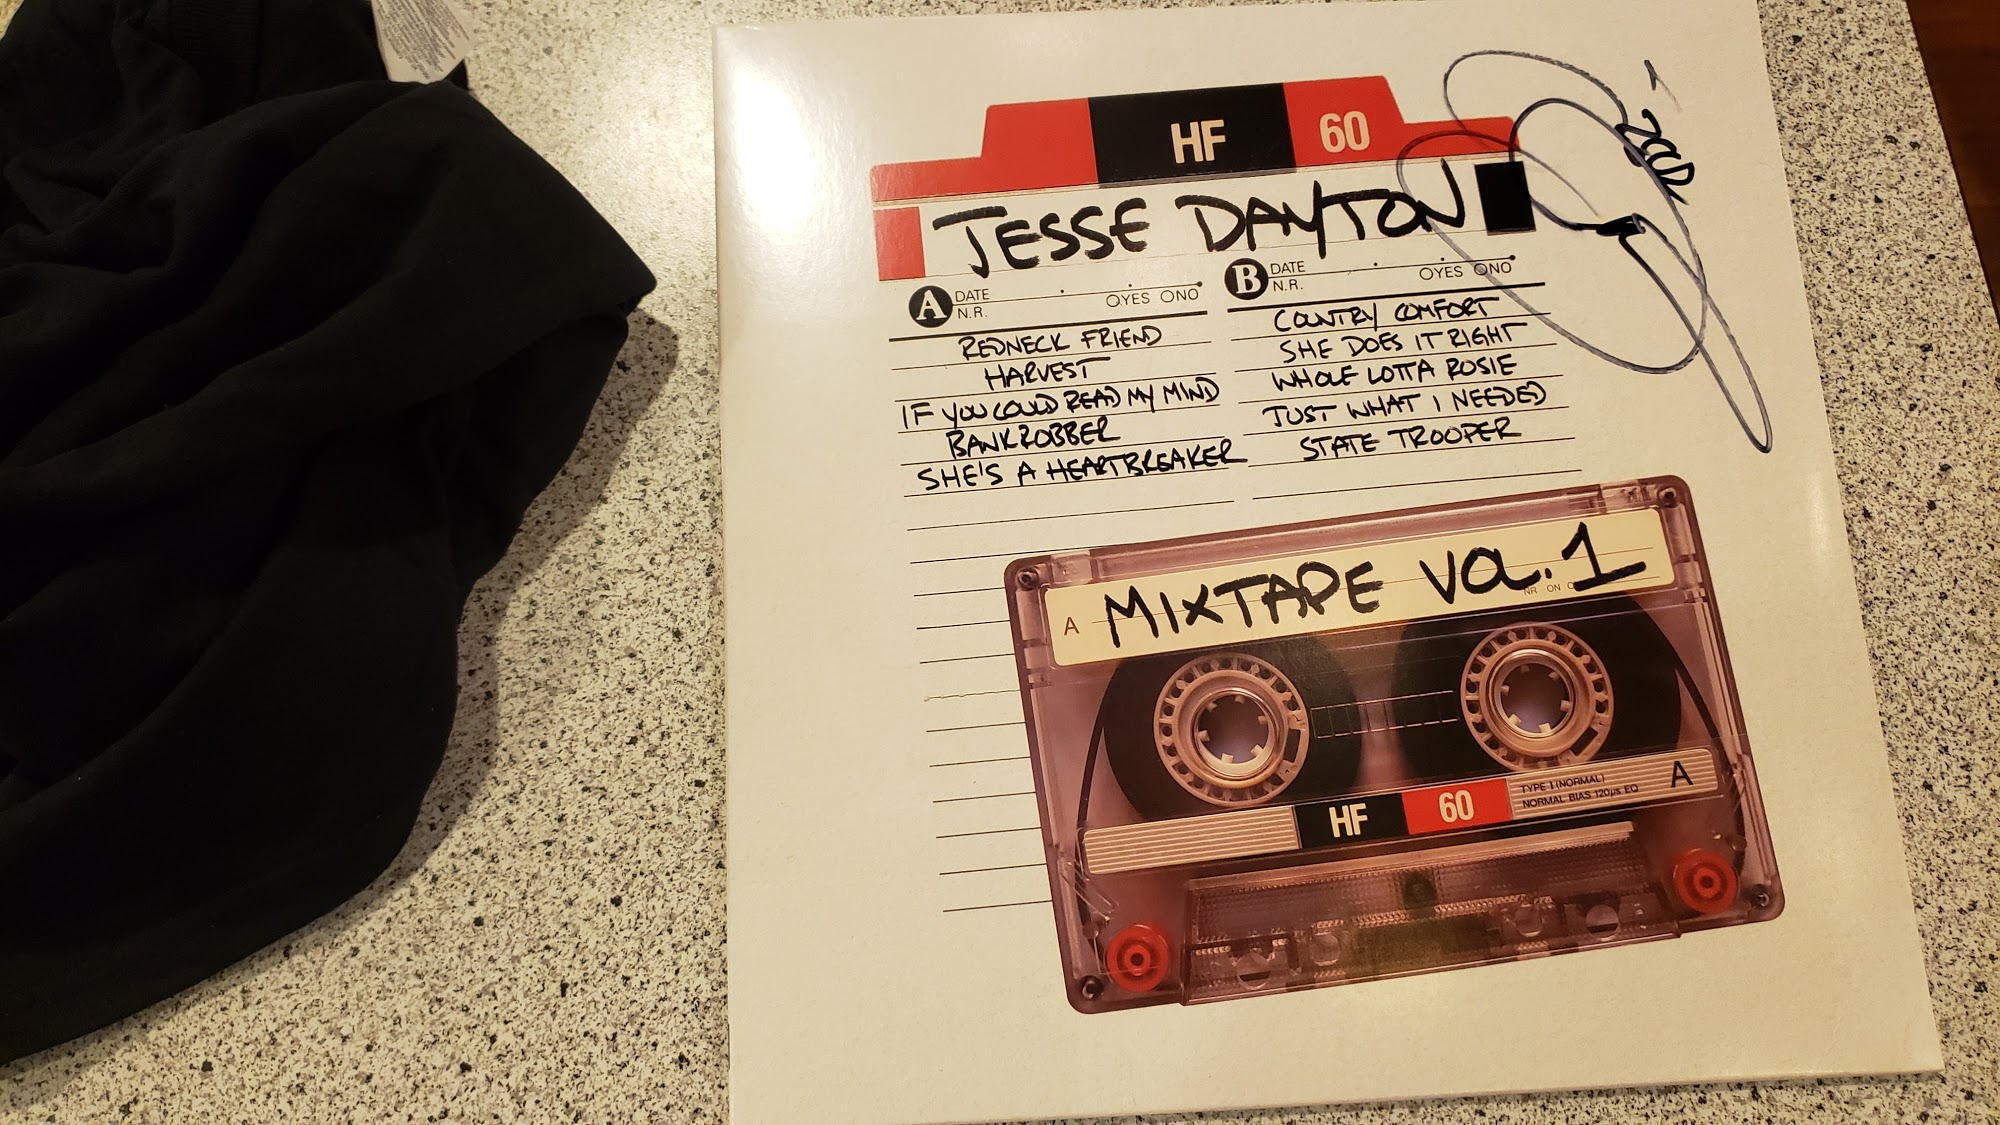 HF 60
JESSE DAYTON
A DATE N.R. OYES ONO
B DATE N.R. OYES ONO
REDNECK FRIEND
HARVEST
IF YOU COULD READ MY MIND
BANKROBBER
SHE'S A HEARTBREAKER
COUNTRY COMFORT
SHE DOES IT RIGHT
WHOLE LOTTA ROSIE
JUST WHAT I NEEDED
STATE TROOPER
A MIXTAPE VOL. 1
NR ON
HF 60
TYPE I (NORMAL)
NORMAL BIAS 120µs EQ
A